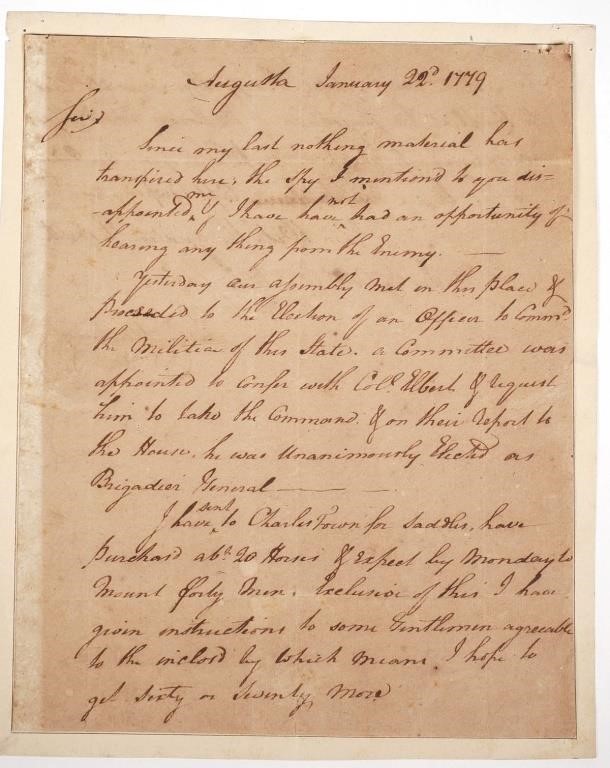 Augusta January 22d. 1779
Sir,
Since my last nothing material has
transpired here, the Spy I mention'd to you dis=
-appointed me & I have have not had an opportunity of
hearing any thing from the Enemy. —
Yesterday our assembly met in this place &
Proceded to the Election of an Officer to Commd.
the Militia of this State. a Committee was
appointed to confer with Coll. Elbert & request
him to take the Command. & on their report to
the House, he was Unanimously Elected as
Brigadier General ———
I have sent to Charles Town for Saddles, have
Purchasd abt. 20 Horses & Expect by Monday to
Mount forty Men. Exclusive of this I have
given instructions to some Gentlemen agreeable
to the inclosd by which means I hope to
get sixty or seventy more